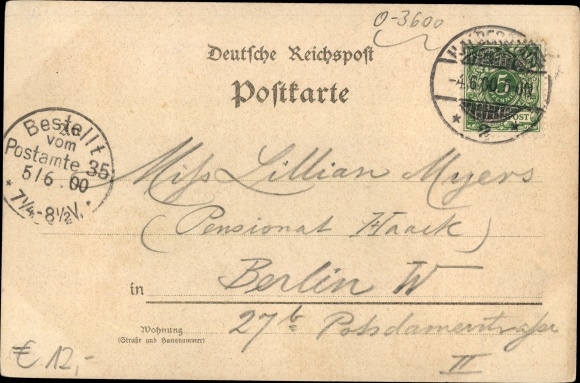 O-3600
Deutsche Reichspost
Postkarte
-4.6.00
5
2
Bestellt
vom
Postamte 35
5/6.00
7¼-8½V.
Miss Lillian Myers
(Pensionat Haack)
in Berlin W
Wohnung
(Straße und Hausnummer)
27b Potsdamerstraße
II
€ 12,-